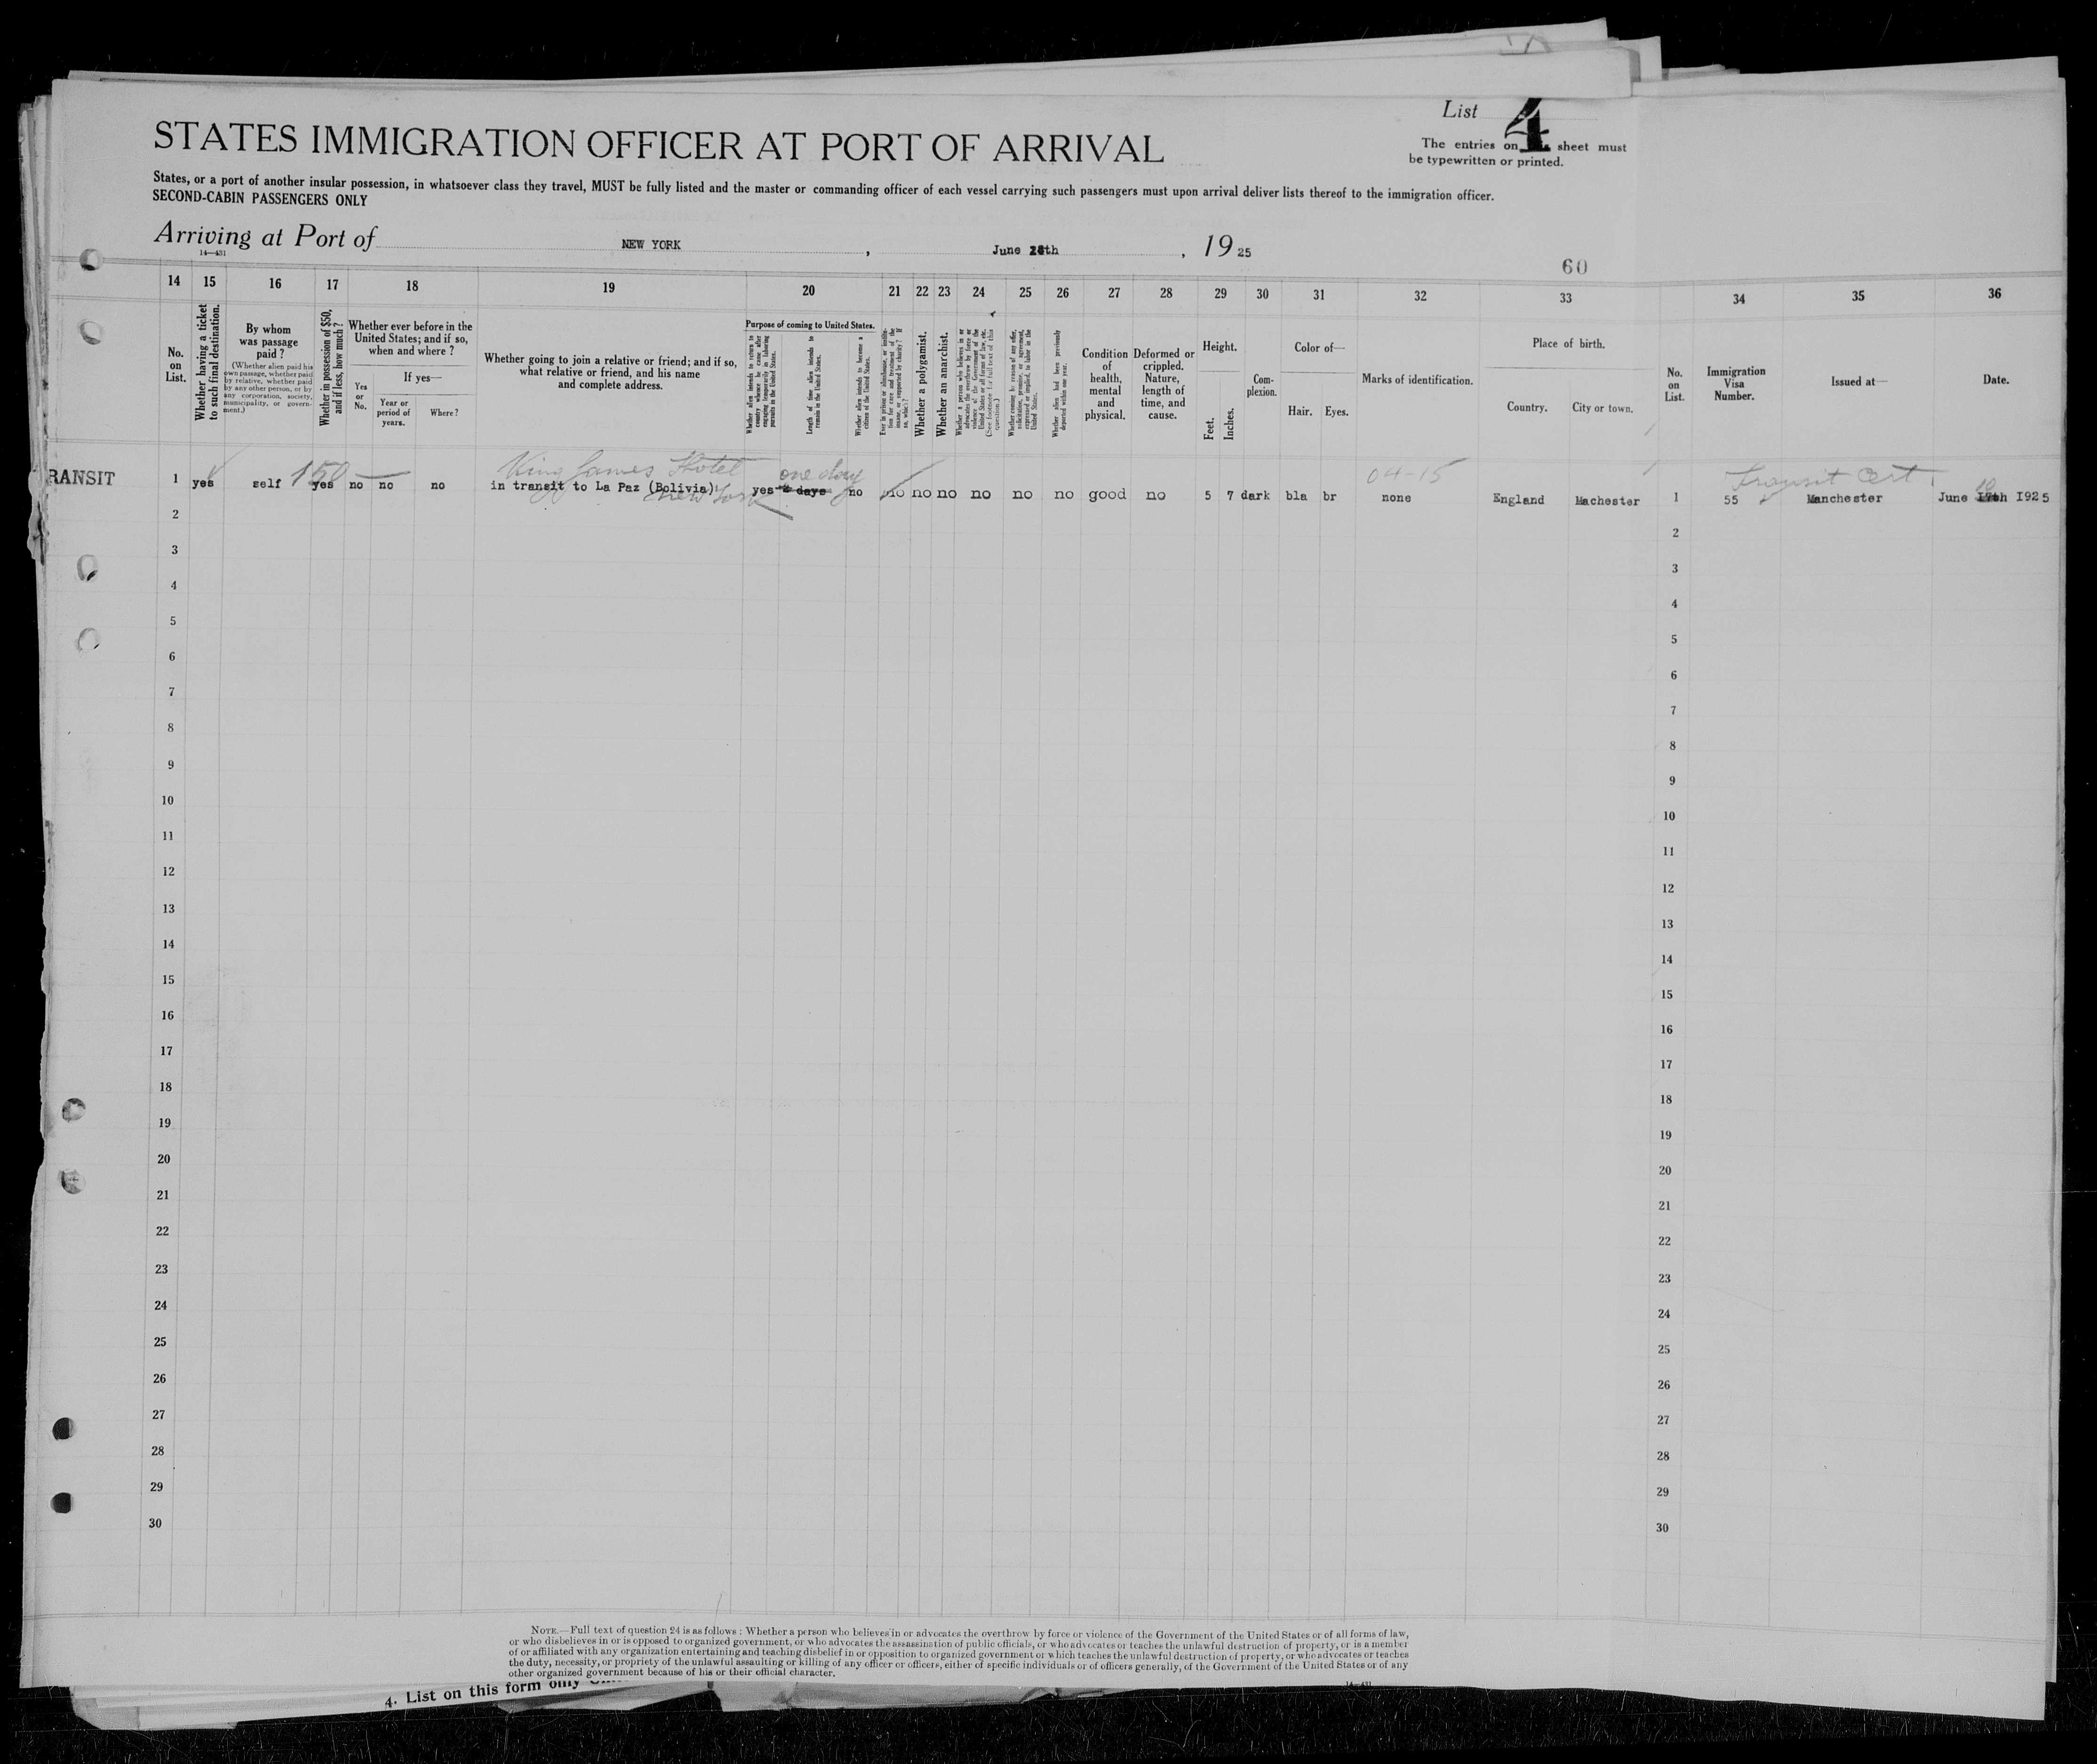 List 4
STATES IMMIGRATION OFFICER AT PORT OF ARRIVAL
The entries on sheet must
be typewritten or printed.
States, or a port of another insular possession, in whatsoever class they travel, MUST be fully listed and the master or commanding officer of each vessel carrying such passengers must upon arrival deliver lists thereof to the immigration officer.
SECOND-CABIN PASSENGERS ONLY
Arriving at Port of NEW YORK, June th, 1925
14—431
60
14 15 16 17 18 19 20 21 22 23 24 25 26 27 28 29 30 31 32 33 34 35 36
No. on List.
Whether having a ticket to such final destination.
By whom was passage paid?
(Whether alien paid his own passage, whether paid by relative, whether paid by any other person, or by any corporation, society, municipality, or government.)
Whether in possession of $50, and if less, how much?
Whether ever before in the United States; and if so, when and where?
Yes or No.
If yes—
Year or period of years.
Where?
Whether going to join a relative or friend; and if so, what relative or friend, and his name and complete address.
Purpose of coming to United States.
Whether alien intends to return to country whence he came after engaging temporarily in laboring pursuits in the United States.
Length of time alien intends to remain in the United States.
Whether alien intends to become a citizen of the United States.
Ever in prison or almshouse, or institution for care and treatment of the insane, or supported by charity? If so, which?
Whether a polygamist.
Whether an anarchist.
Whether a person who believes in or advocates the overthrow by force or violence of the Government of the United States or all forms of law, etc. (See footnote for full text of this question.)
Whether coming by reason of any offer, solicitation, promise, or agreement, expressed or implied, to labor in the United States.
Whether alien had been previously deported within one year.
Condition of health, mental and physical.
Deformed or crippled. Nature, length of time, and cause.
Height.
Feet.
Inches.
Complexion.
Color of—
Hair. Eyes.
Marks of identification.
Place of birth.
Country. City or town.
No. on List.
Immigration Visa Number.
Issued at—
Date.
King James Hotel one day 04-15 Transit Cert.
150
RANSIT 1 yes self yes no no no in transit to La Paz (Bolivia) yes days no no no no no no no good no 5 7 dark bla br none England Machester 1 55 Manchester June 1925
New York
2 2
3 3
4 4
5 5
6 6
7 7
8 8
9 9
10 10
11 11
12 12
13 13
14 14
15 15
16 16
17 17
18 18
19 19
20 20
21 21
22 22
23 23
24 24
25 25
26 26
27 27
28 28
29 29
30 30
NOTE.—Full text of question 24 is as follows: Whether a person who believes in or advocates the overthrow by force or violence of the Government of the United States or of all forms of law,
or who disbelieves in or is opposed to organized government, or who advocates the assassination of public officials, or who advocates or teaches the unlawful destruction of property, or is a member
of or affiliated with any organization entertaining and teaching disbelief in or opposition to organized government or which teaches the unlawful destruction of property, or who advocates or teaches
the duty, necessity, or propriety of the unlawful assaulting or killing of any officer or officers, either of specific individuals or of officers generally, of the Government of the United States or of any
other organized government because of his or their official character.
14—431
4. List on this form only